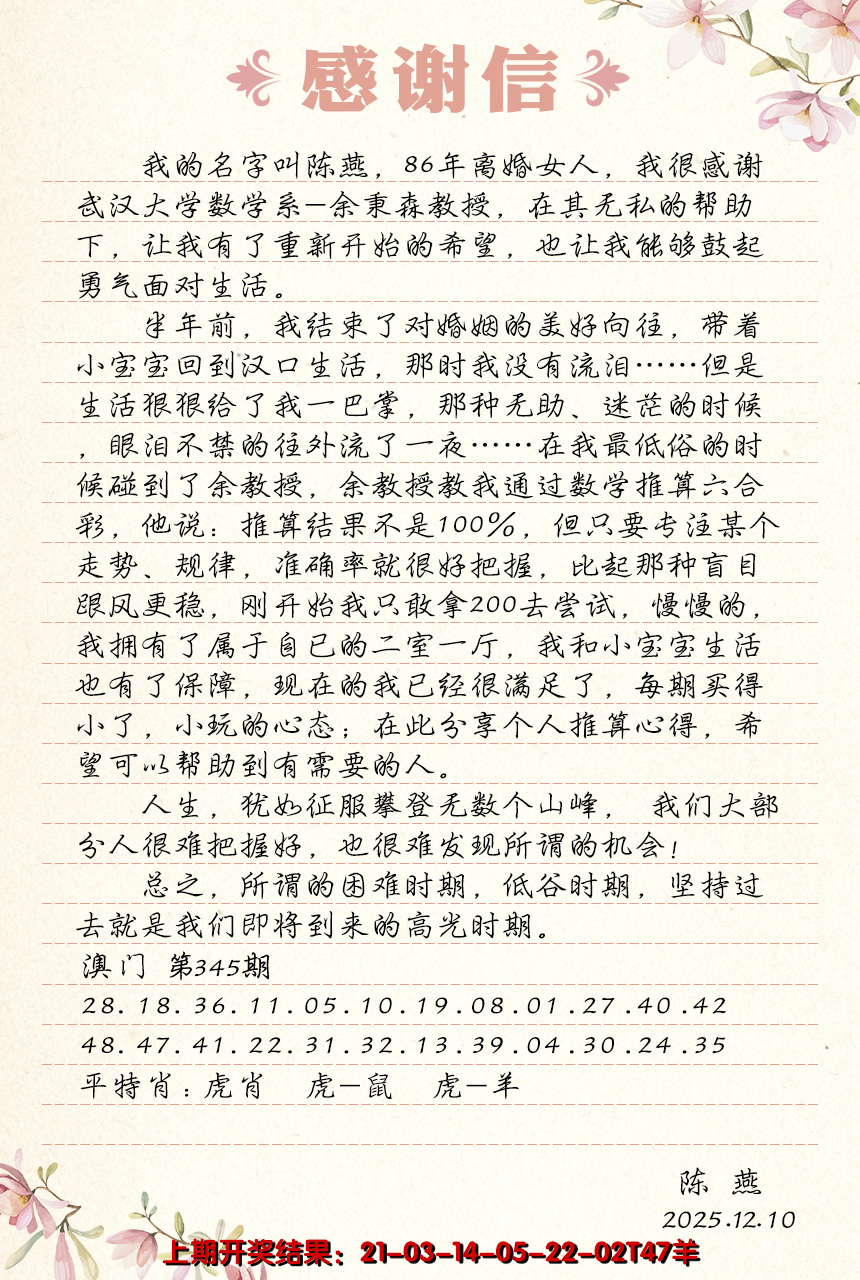 感谢信
我的名字叫陈燕，86年离婚女人，我很感谢
武汉大学数学系—余秉森教授，在其无私的帮助
下，让我有了重新开始的希望，也让我能够鼓起
勇气面对生活。
半年前，我结束了对婚姻的美好向往，带着
小宝宝回到汉口生活，那时我没有流泪……但是
生活狠狠给了我一巴掌，那种无助、迷茫的时候
，眼泪不禁的往外流了一夜……在我最低俗的时
候碰到了余教授，余教授教我通过数学推算六合
彩，他说：推算结果不是100%，但只要专注某个
走势、规律，准确率就很好把握，比起那种盲目
跟风更稳，刚开始我只敢拿200去尝试，慢慢的，
我拥有了属于自已的二室一厅，我和小宝宝生活
也有了保障，现在的我已经很满足了，每期买得
小了，小玩的心态；在此分享个人推算心得，希
望可以帮助到有需要的人。
人生，犹如征服攀登无数个山峰， 我们大部
分人很难把握好，也很难发现所谓的机会！
总之，所谓的困难时期，低谷时期，坚持过
去就是我们即将到来的高光时期。
澳门 第345期
28.18.36.11.05.10.19.08.01.27.40.42
48.47.41.22.31.32.13.39.04.30.24.35
平特肖：虎肖 虎—鼠 虎—羊
陈 燕
2025.12.10
上期开奖结果：21-03-14-05-22-02T47羊